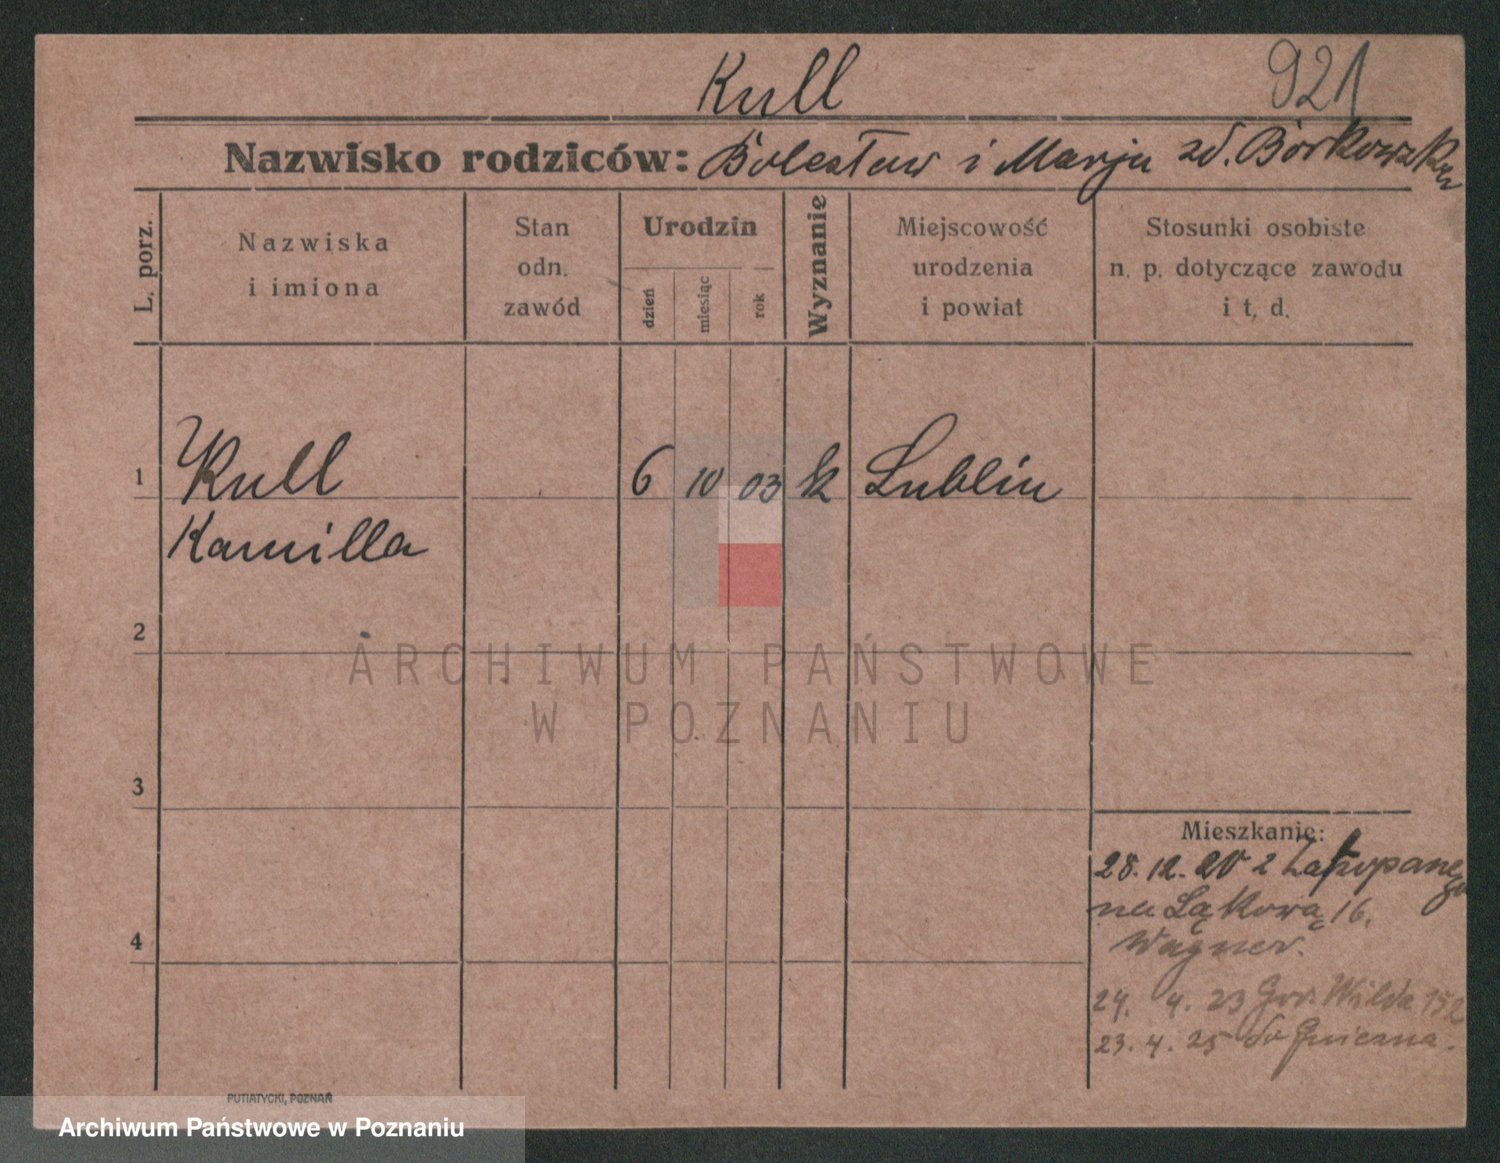 Kull
921
Nazwisko rodziców: Bolesław i Marja zd. Borkowska
L. porz.
Nazwiska
i imiona
Stan
odn.
zawód
Urodzin
dzień
miesiąc
rok
Wyznanie
Miejscowość
urodzenia
i powiat
Stosunki osobiste
n. p. dotyczące zawodu
i t, d.
1
Kull
6 10 03 k Lublin
Kamilla
2
ARCHIWUM PAŃSTWOWE
W POZNANIU
3
4
Mieszkanie:
28.12.20 z Zakopanego
na Łąkową 16.
Wagner.
24. 4. 23 Gór. Wilda 152
23. 4. 25 do Gniezna.
PUTIATYCKI, POZNAŃ
Archiwum Państwowe w Poznaniu